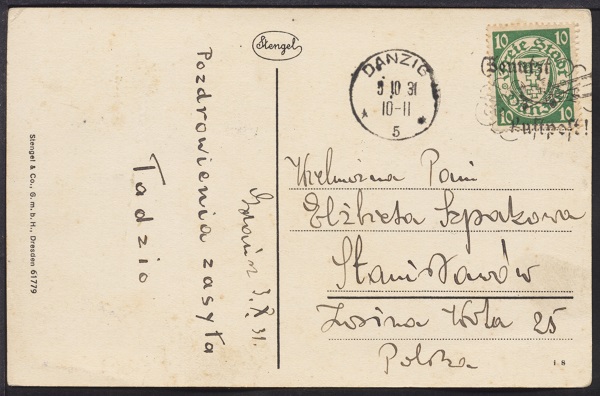 Stengel
DANZIG
10 31
10-11
5
10 10
Freie Stadt
Danzig
10 10
Benutzt
Luftpost!
Wielmożna Pani
Elżbieta Szpakowa
Stanisławów
Wola 25
Polska
Pozdrowienia zasyła
Tadzio
3.X.31.
Stengel & Co., G.m.b.H., Dresden 61779
I. 8